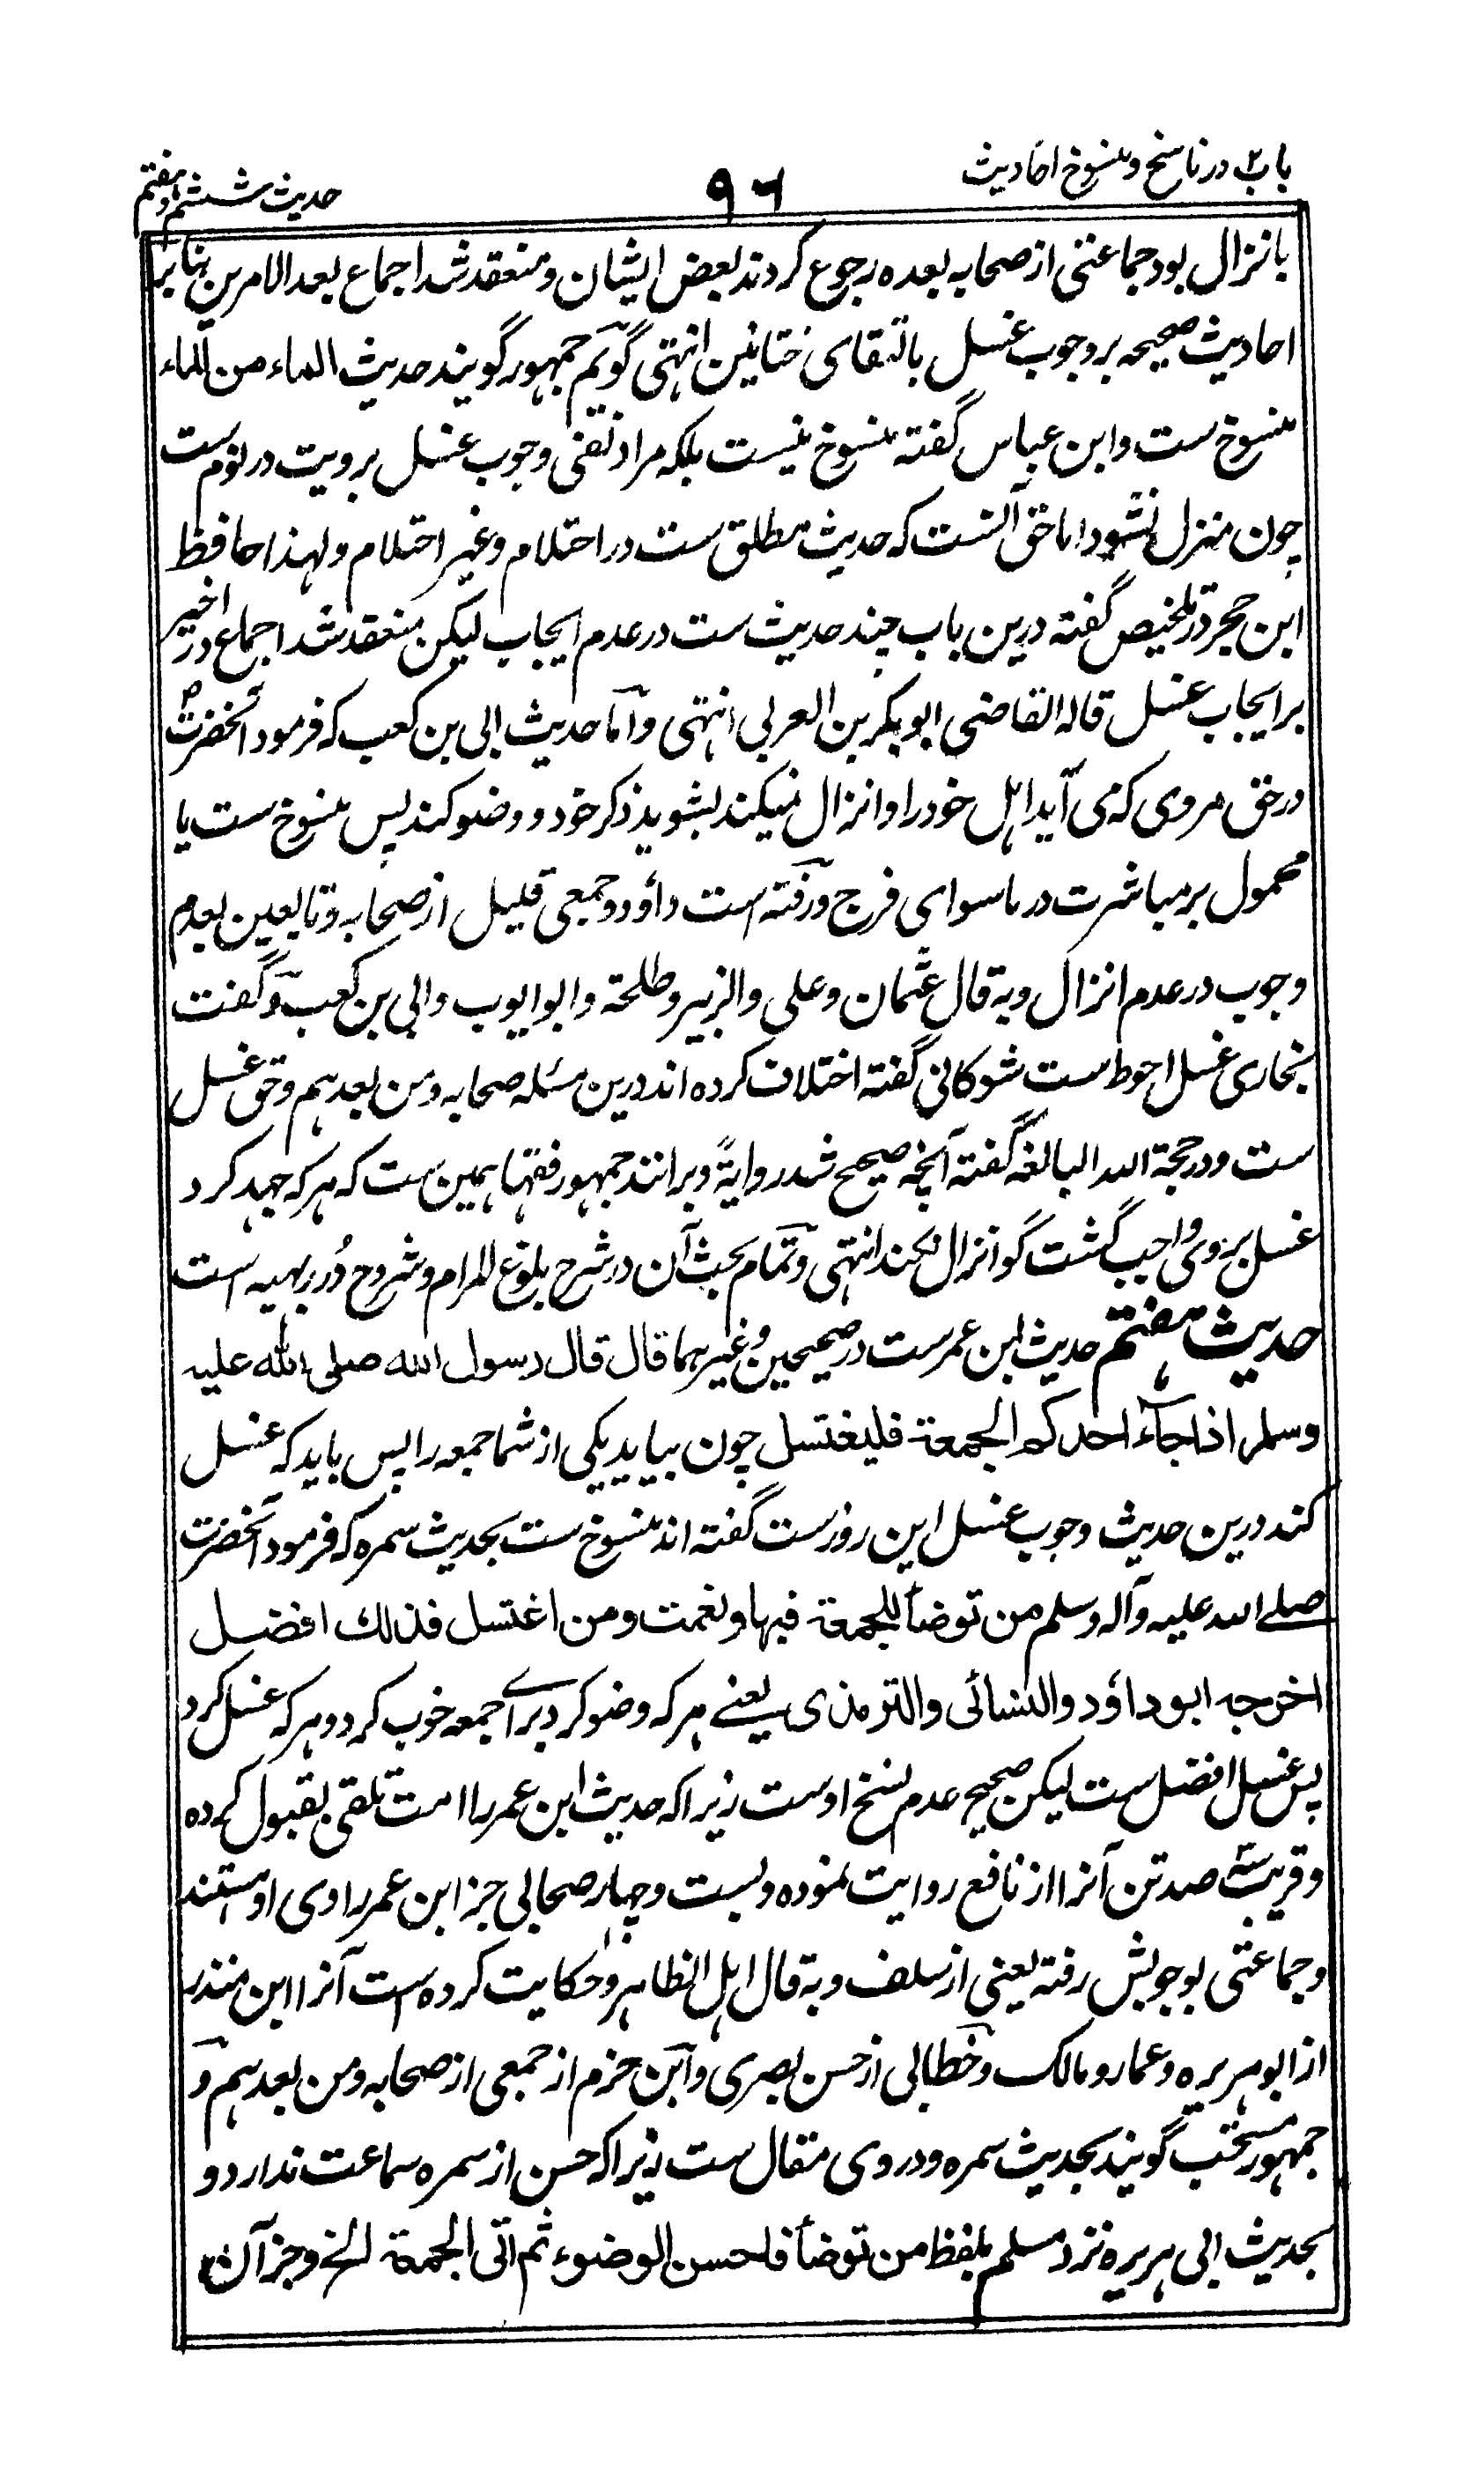 باب۲ در ناسخ و منسوخ احادیث
۹۶
حدیث ششم و هفتم
بانزال بود جماعتی از صحابه بعده رجوع کردند بعض ایشان و منعقد شد اجماع بعد الامرین بنا بر
احادیث صحیحه بر وجوب غسل بالتقای ختانین انتهی گویم جمهور گویند حدیث الماء من الماء
منسوخ ست و ابن عباس گفته منسوخ نیست بلکه مراد نفی وجوب غسل برویت در نوم ست
چون منزل نشود اما حق آنست که حدیث مطلق ست در احتلام و غیر احتلام و لهذا حافظ
ابن حجر در تلخیص گفته درین باب چند حدیث ست در عدم ایجاب لیکن منعقد شد اجماع در اخیر
بر ایجاب غسل قاله القاضی ابوبکر بن العربی انتهی و اما حدیث ابی بن کعب که فرمود آنحضرتؐ
در حق مروی که می آید اهل خود را و انزال نمیکند بشوید ذکر خود و وضو کند پس منسوخ ست یا
محمول بر مباشرت در ماسوای فرج و رفته است داؤد و جمعی قلیل از صحابه و تابعین بعدم
وجوب در عدم انزال و به قال عثمان و علی والزبیر و طلحة و ابو ایوب و ابی بن کعب و گفت
بخاری غسل احوط ست شوکانی گفته اختلاف کرده اند درین مسئله صحابه و من بعدهم و حق غسل
ست و در حجة الله البالغه گفته آنچه صحیح شد روایةً و برانند جمهور فقها همین ست که هر که جهد کرد
غسل بر وی واجب گشت گو انزال نکند انتهی و تمام بحث آن در شرح بلوغ المرام و شروح دُرر بهیه است
حدیث هفتم حدیث ابن عمر ست در صحیحین و غیرهما قال قال رسول الله صلی الله علیه
وسلم اذا جاء احدکم الجمعة فلیغتسل چون بیاید یکی از شما جمعه را پس باید که غسل
کند درین حدیث وجوب غسل این روز ست گفته اند منسوخ ست بحدیث سمره که فرمود آنحضرت
صلے الله علیه و آله وسلم من توضأ للجمعة فبها و نعمت و من اغتسل فذلك افضل
اخرجه ابو داؤد والنسائی والترمذی یعنے هر که وضو کرد برای جمعه خوب کرد و هر که غسل کرد
پس غسل افضل ست لیکن صحیح عدم نسخ اوست زیرا که حدیث ابن عمر را امت تلقی بقبول کرده
و قریب سه صد تن آنرا از نافع روایت نموده و بست و چهار صحابی جز ابن عمر راوی او هستند
و جماعتی بوجوبش رفته یعنی از سلف و به قال اهل الظاهر و حکایت کرده است آنرا ابن منذر
از ابو هریره و عمار و مالک و خطابی از حسن بصری و ابن حزم از جمعی از صحابه و من بعدهم و
جمهور مستحب گویند بحدیث سمره و در وی مقال ست زیرا که حسن از سمره سماعت ندارد و
بحدیث ابی هریره نزد مسلم بلفظ من توضأ فاحسن الوضوء ثم اتی الجمعة الخ و جز آن